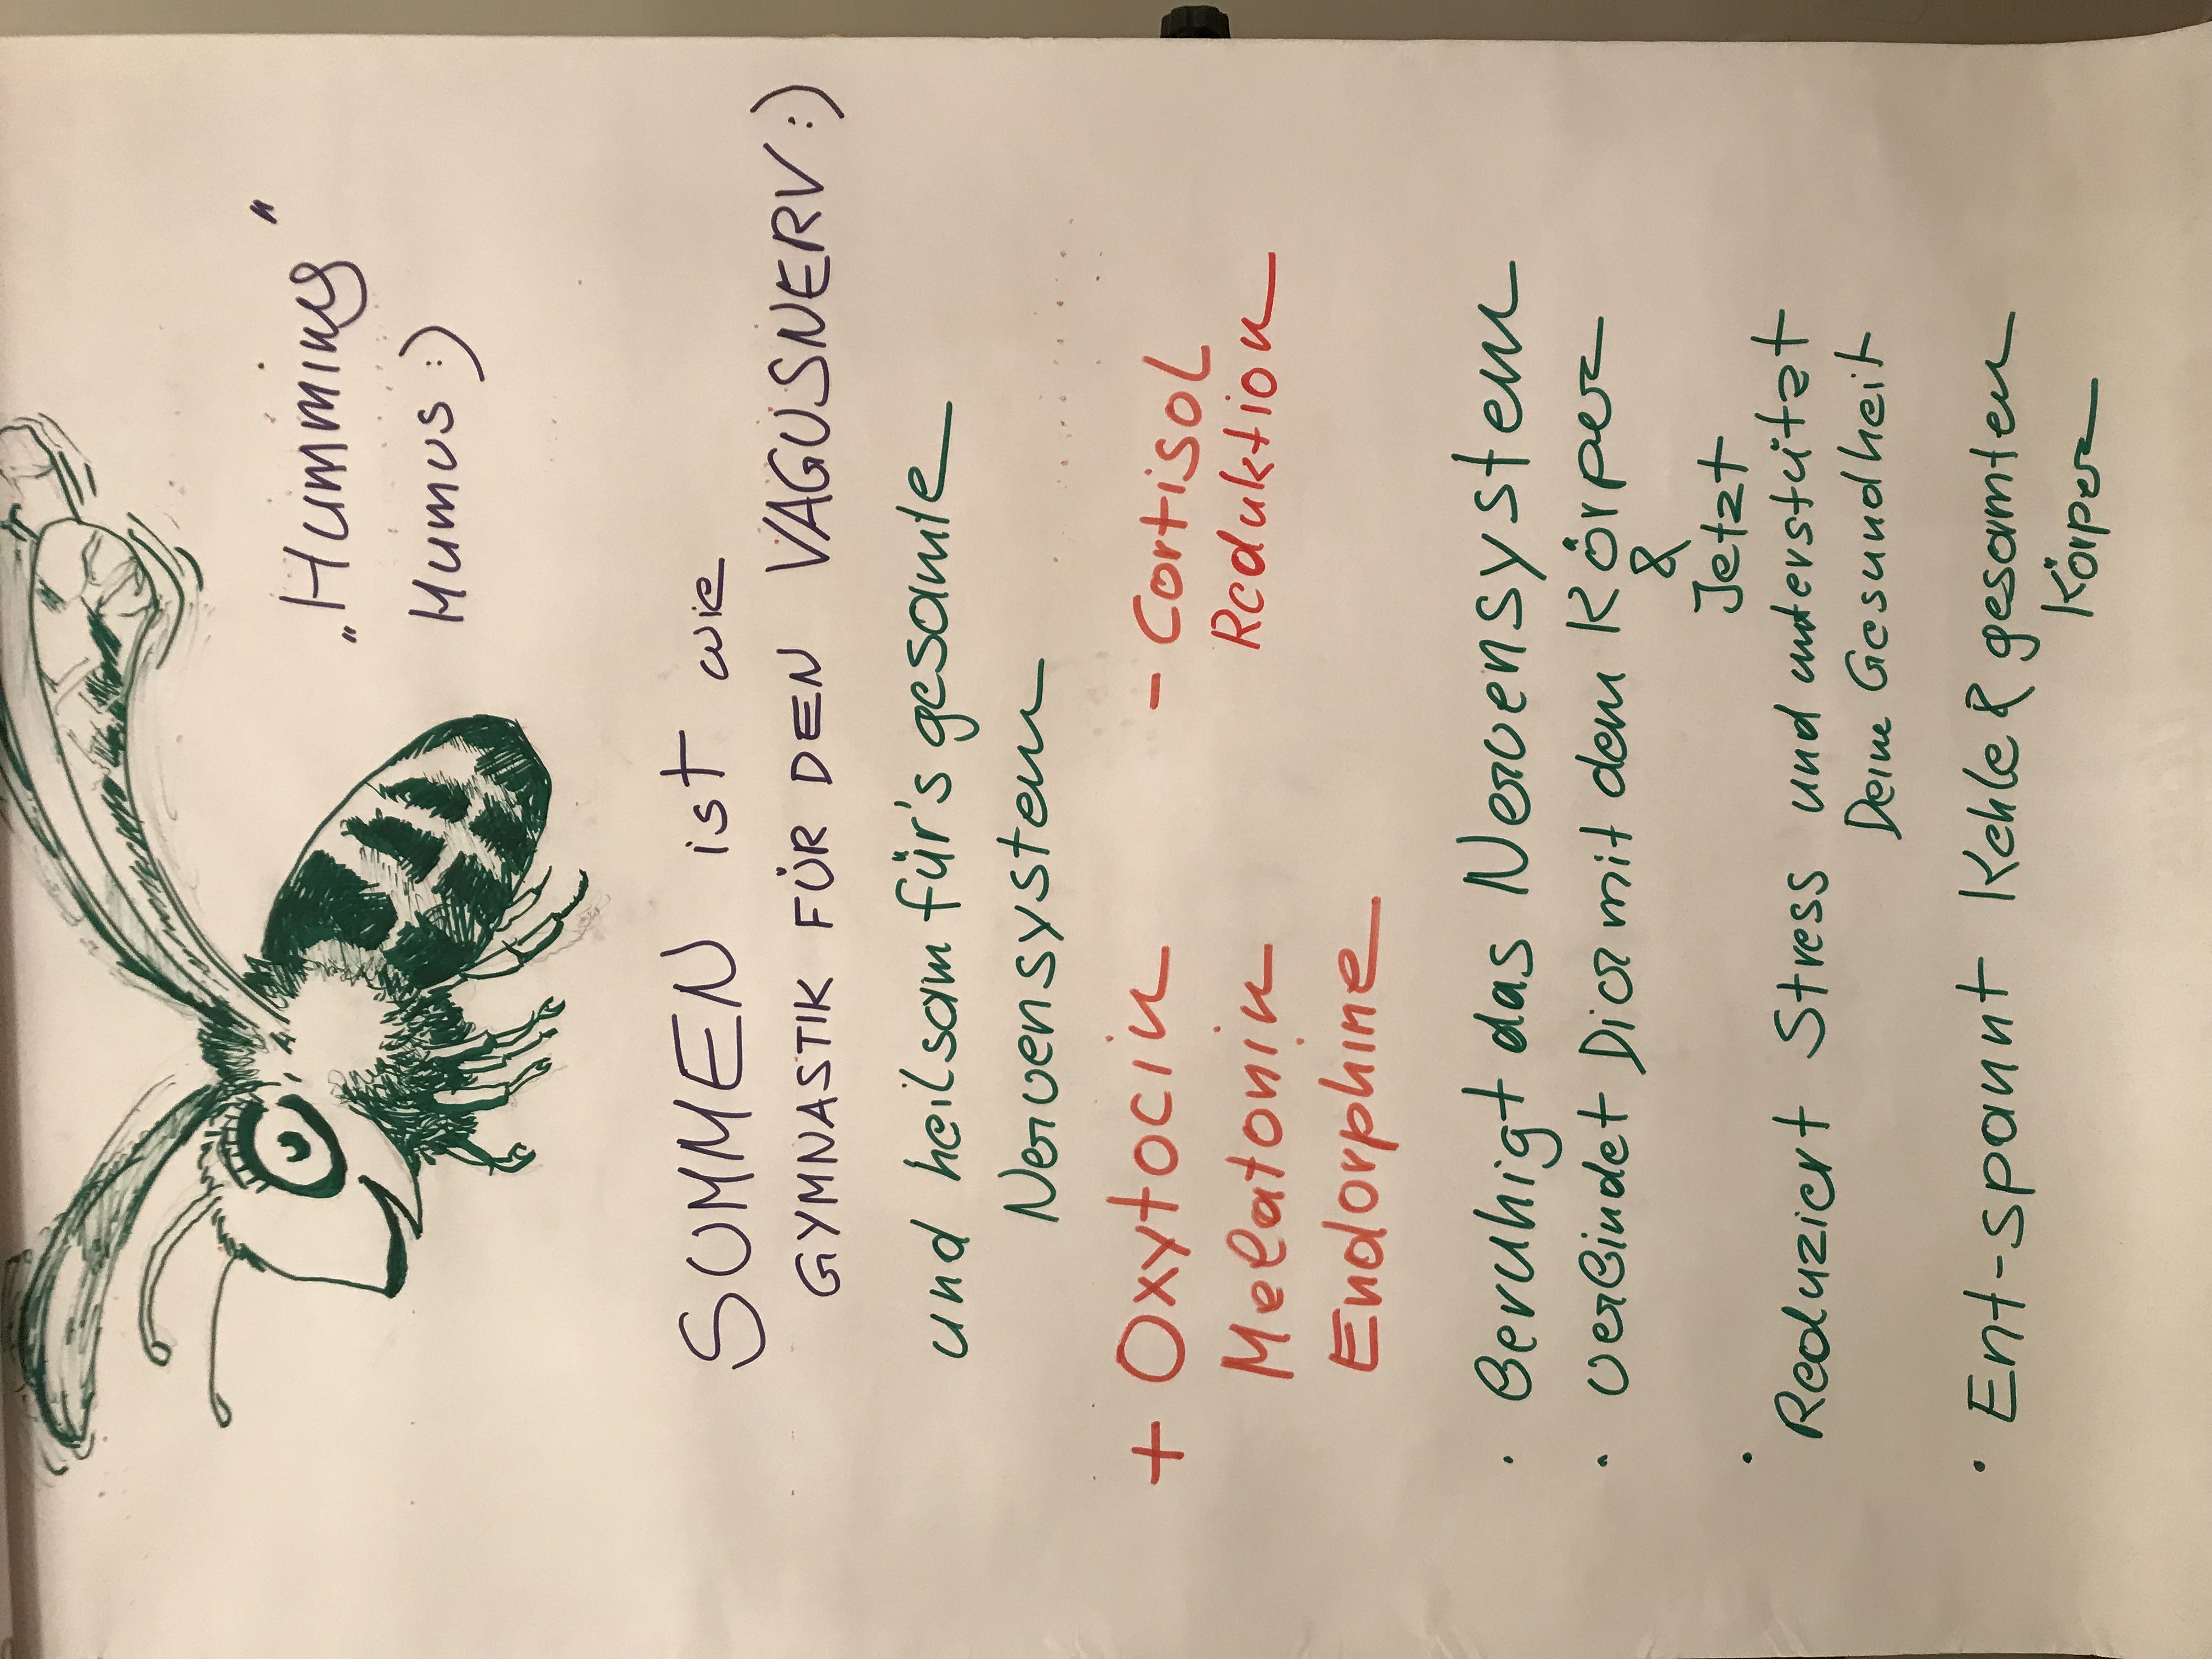 „Humming"
Humus :)
SUMMEN ist wie
GYMNASTIK FÜR DEN VAGUSNERV :)
und heilsam für's gesamte
Nervensystem
+ Oxytocin
Melatonin
Endorphine
- Cortisol
Reduktion
· Beruhigt das Nervensystem
· verbindet Dich mit dem Körper
&
Jetzt
· Reduziert Stress und unterstützt
Deine Gesundheit
· Ent-spannt Kehle & gesamten
Körper